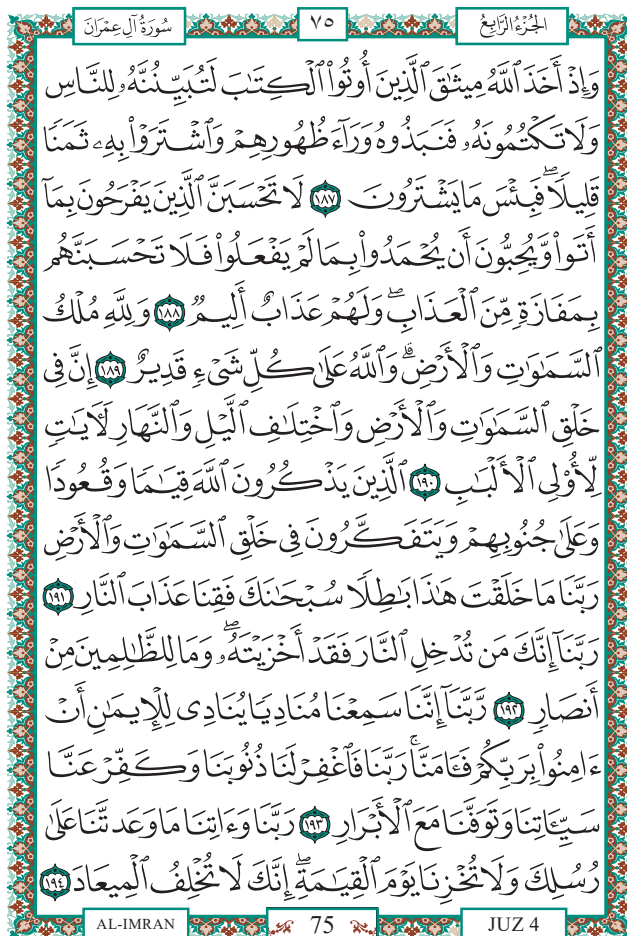 سُورَةُ آلِ عِمْرَانَ ٧٥ الجُزْءُ الرَّابِعُ
وَإِذْ أَخَذَ ٱللَّهُ مِيثَٰقَ ٱلَّذِينَ أُوتُوا۟ ٱلْكِتَٰبَ لَتُبَيِّنُنَّهُۥ لِلنَّاسِ
وَلَا تَكْتُمُونَهُۥ فَنَبَذُوهُ وَرَآءَ ظُهُورِهِمْ وَٱشْتَرَوْا۟ بِهِۦ ثَمَنًا
قَلِيلًا ۖ فَبِئْسَ مَا يَشْتَرُونَ ١٨٧ لَا تَحْسَبَنَّ ٱلَّذِينَ يَفْرَحُونَ بِمَآ
أَتَوا۟ وَّيُحِبُّونَ أَن يُحْمَدُوا۟ بِمَا لَمْ يَفْعَلُوا۟ فَلَا تَحْسَبَنَّهُم
بِمَفَازَةٍ مِّنَ ٱلْعَذَابِ ۖ وَلَهُمْ عَذَابٌ أَلِيمٌ ١٨٨ وَلِلَّهِ مُلْكُ
ٱلسَّمَٰوَٰتِ وَٱلْأَرْضِ ۗ وَٱللَّهُ عَلَىٰ كُلِّ شَىْءٍ قَدِيرٌ ١٨٩ إِنَّ فِى
خَلْقِ ٱلسَّمَٰوَٰتِ وَٱلْأَرْضِ وَٱخْتِلَٰفِ ٱلَّيْلِ وَٱلنَّهَارِ لَءَايَٰتٍ
لِّأُو۟لِى ٱلْأَلْبَٰبِ ١٩٠ ٱلَّذِينَ يَذْكُرُونَ ٱللَّهَ قِيَٰمًا وَقُعُودًا
وَعَلَىٰ جُنُوبِهِمْ وَيَتَفَكَّرُونَ فِى خَلْقِ ٱلسَّمَٰوَٰتِ وَٱلْأَرْضِ
رَبَّنَا مَا خَلَقْتَ هَٰذَا بَٰطِلًا سُبْحَٰنَكَ فَقِنَا عَذَابَ ٱلنَّارِ ١٩١
رَبَّنَآ إِنَّكَ مَن تُدْخِلِ ٱلنَّارَ فَقَدْ أَخْزَيْتَهُۥ ۖ وَمَا لِلظَّٰلِمِينَ مِنْ
أَنصَارٍ ١٩٢ رَّبَّنَآ إِنَّنَا سَمِعْنَا مُنَادِيًا يُنَادِى لِلْإِيمَٰنِ أَنْ
ءَامِنُوا۟ بِرَبِّكُمْ فَـَٔامَنَّا ۚ رَبَّنَا فَٱغْفِرْ لَنَا ذُنُوبَنَا وَكَفِّرْ عَنَّا
سَيِّـَٔاتِنَا وَتَوَفَّنَا مَعَ ٱلْأَبْرَارِ ١٩٣ رَبَّنَا وَءَاتِنَا مَا وَعَدتَّنَا عَلَىٰ
رُسُلِكَ وَلَا تُخْزِنَا يَوْمَ ٱلْقِيَٰمَةِ ۗ إِنَّكَ لَا تُخْلِفُ ٱلْمِيعَادَ ١٩٤
AL-IMRAN 75 JUZ 4